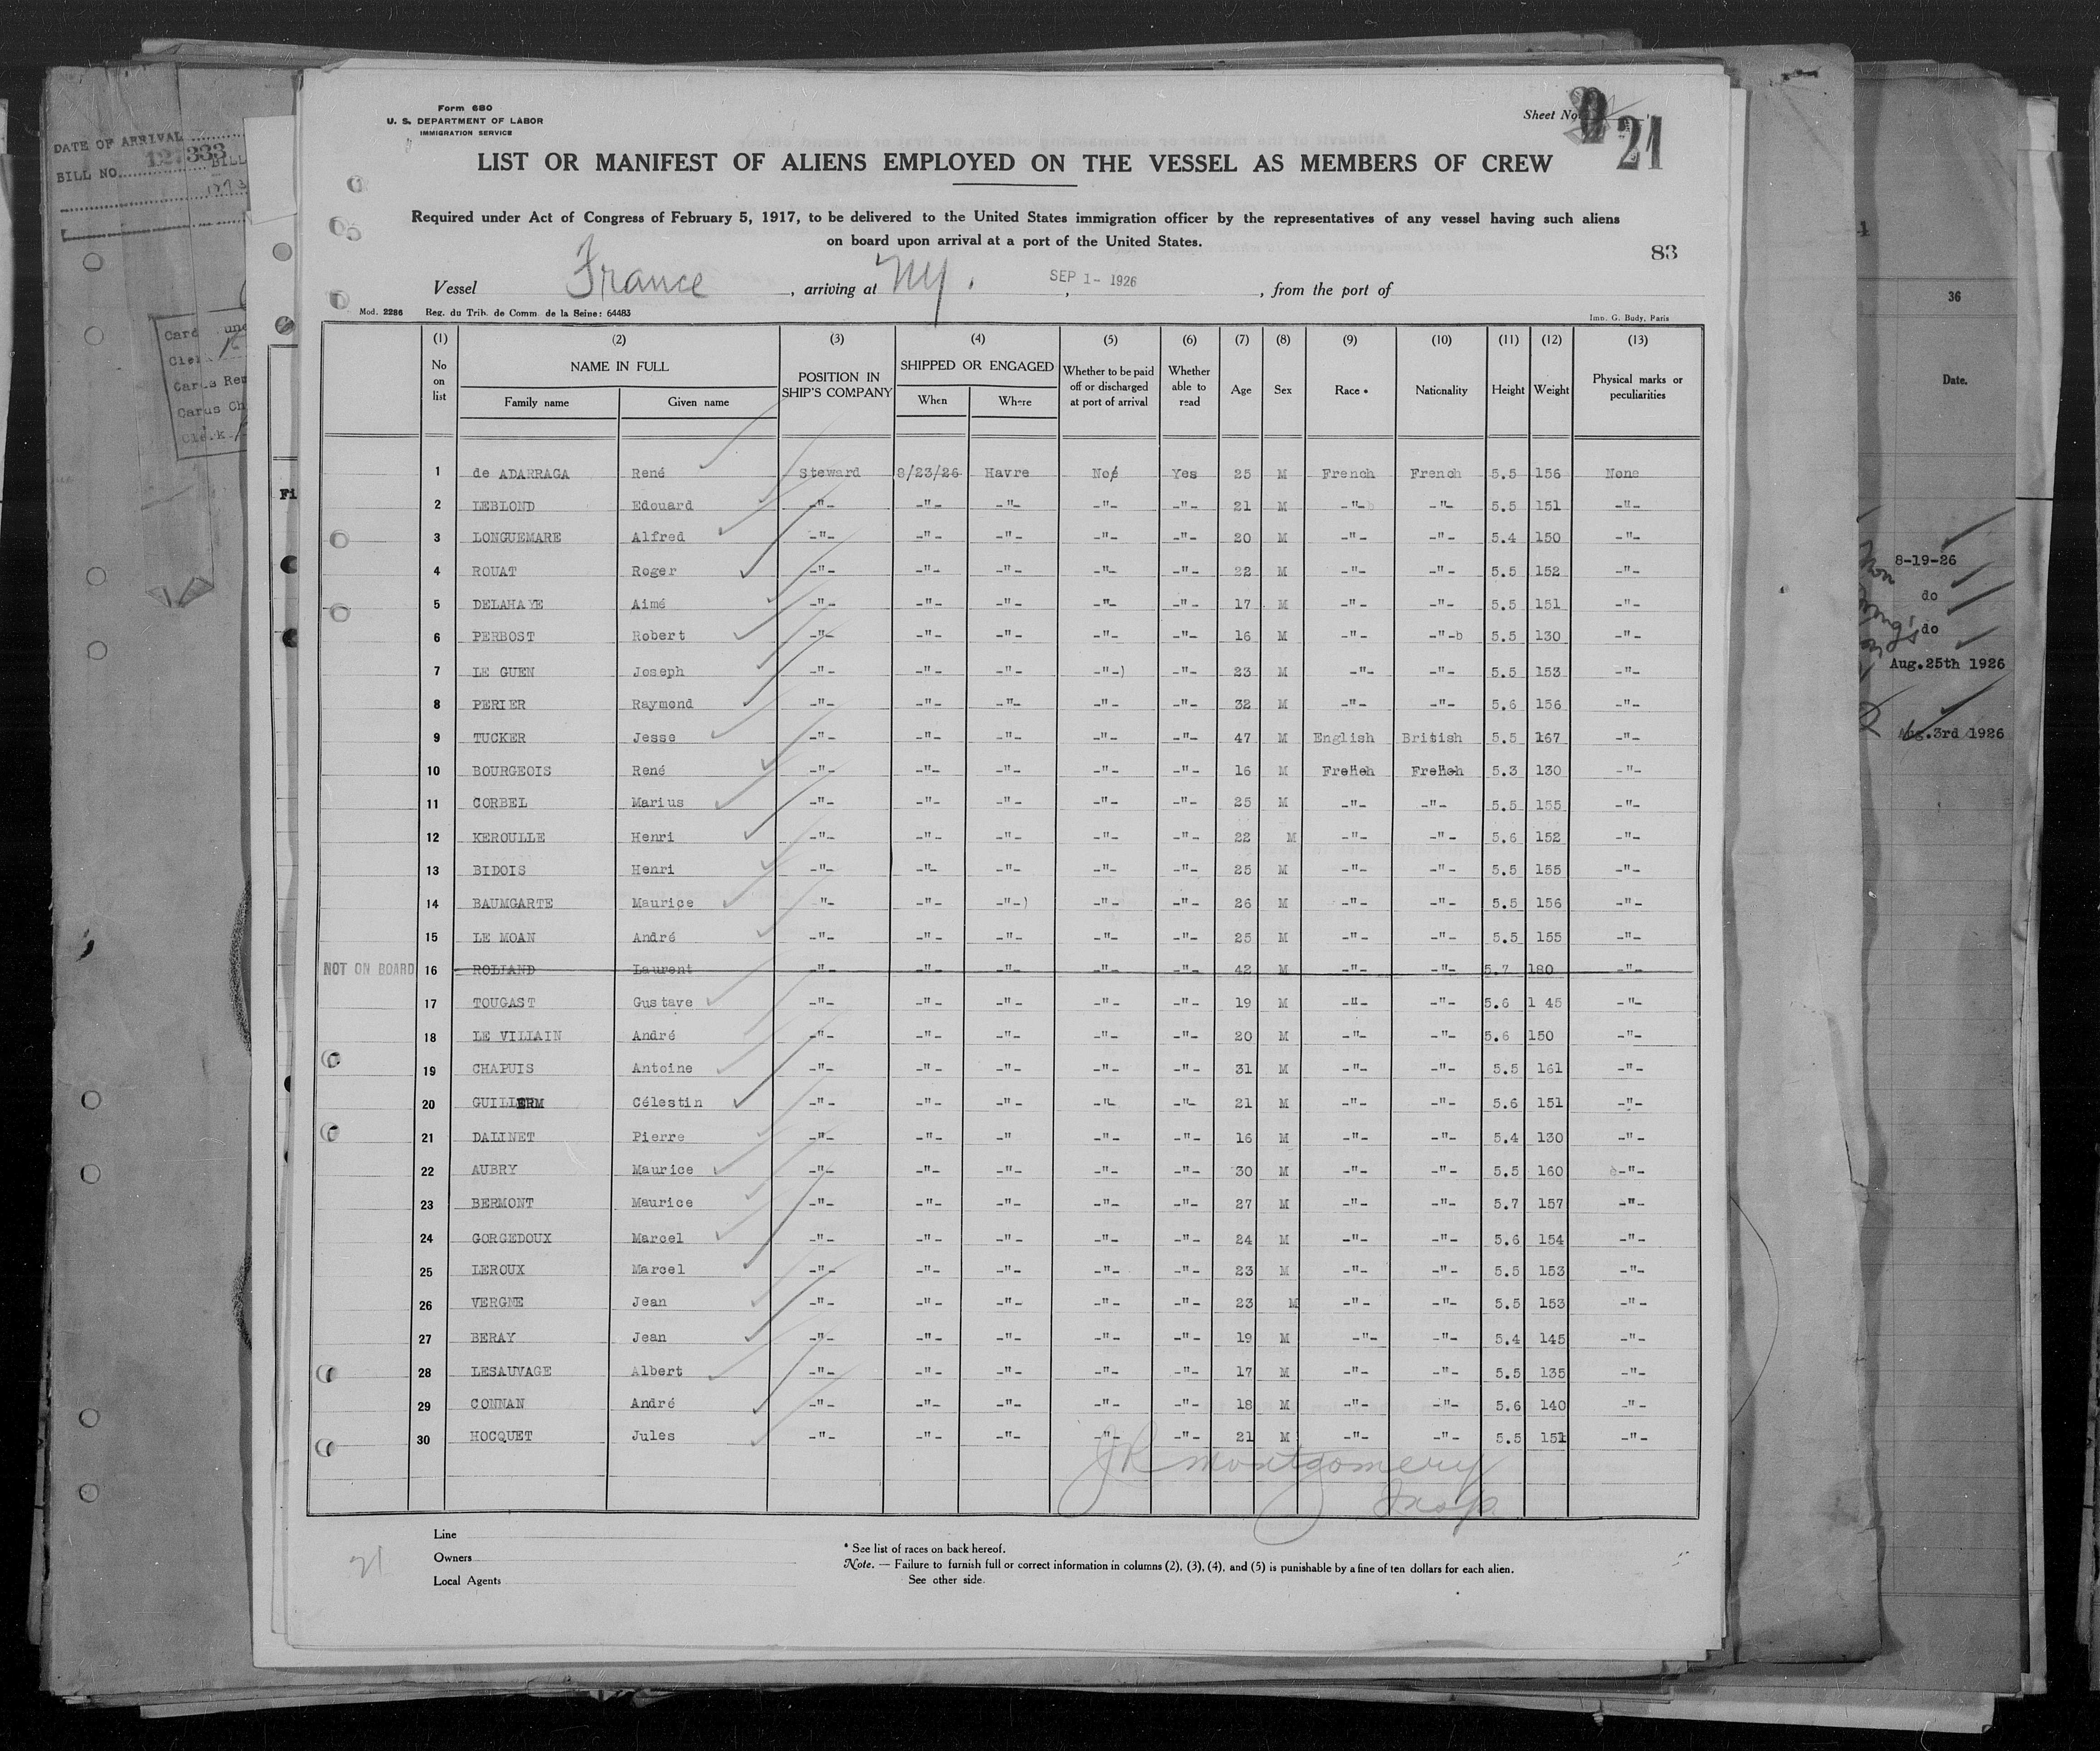 Form 680
U. S. DEPARTMENT OF LABOR
IMMIGRATION SERVICE
Sheet No
21
LIST OR MANIFEST OF ALIENS EMPLOYED ON THE VESSEL AS MEMBERS OF CREW
Required under Act of Congress of February 5, 1917, to be delivered to the United States immigration officer by the representatives of any vessel having such aliens
on board upon arrival at a port of the United States.
83
Vessel France, arriving at NY. SEP 1- 1926, from the port of
Mod. 2286 Reg. du Trib. de Comm. de la Seine: 64483 Imp. G. Budy, Paris
(1) (2) (3) (4) (5) (6) (7) (8) (9) (10) (11) (12) (13)
No on list NAME IN FULL Family name Given name POSITION IN SHIP'S COMPANY SHIPPED OR ENGAGED When Where Whether to be paid off or discharged at port of arrival Whether able to read Age Sex Race * Nationality Height Weight Physical marks or peculiarities
1 de ADARRAGA René Steward 8/23/26 Havre No Yes 25 M French French 5.5 156 None
2 LEBLOND Edouard -"- -"- -"- -"- -"- 21 M -"- -"- 5.5 151 -"-
3 LONGUEMARE Alfred -"- -"- -"- -"- -"- 20 M -"- -"- 5.4 150 -"-
4 ROUAT Roger -"- -"- -"- -"- -"- 22 M -"- -"- 5.5 152 -"-
5 DELAHAYE Aimé -"- -"- -"- -"- -"- 17 M -"- -"- 5.5 151 -"-
6 PERBOST Robert -"- -"- -"- -"- -"- 16 M -"- -"-b 5.5 130 -"-
7 LE GUEN Joseph -"- -"- -"- -"-) -"- 23 M -"- -"- 5.5 153 -"-
8 PERIER Raymond -"- -"- -"- -"- -"- 32 M -"- -"- 5.6 156 -"-
9 TUCKER Jesse -"- -"- -"- -"- -"- 47 M English British 5.5 167 -"-
10 BOURGEOIS René -"- -"- -"- -"- -"- 16 M French French 5.3 130 -"-
11 CORBEL Marius -"- -"- -"- -"- -"- 25 M -"- -"- 5.5 155 -"-
12 KEROULLE Henri -"- -"- -"- -"- -"- 22 M -"- -"- 5.6 152 -"-
13 BIDOIS Henri -"- -"- -"- -"- -"- 25 M -"- -"- 5.5 155 -"-
14 BAUMGARTE Maurice "- -"- -"-) -"- -"- 26 M -"- -"- 5.5 156 -"-
15 LE MOAN André -"- -"- -"- -"- -"- 25 M -"- -"- 5.5 155 -"-
NOT ON BOARD 16 ROLLAND Laurent -"- -"- -"- -"- -"- 42 M -"- -"- 5.7 180 -"-
17 TOUGAST Gustave -"- -"- -"- -"- -"- 19 M -"- -"- 5.6 1 45 -"-
18 LE VILLAIN André -"- -"- -"- -"- -"- 20 M -"- -"- 5.6 150 -"-
19 CHAPUIS Antoine -"- -"- -"- -"- -"- 31 M -"- -"- 5.5 161 -"-
20 GUILLERM Célestin -"- -"- -"- -"- -"- 21 M -"- -"- 5.6 151 -"-
21 DALINET Pierre -"- -"- -" -"- -"- 16 M -"- -"- 5.4 130 -"-
22 AUBRY Maurice -"- -"- -"- -"- -"- 30 M -"- -"- 5.5 160 -"-
23 BERMONT Maurice -"- -"- -"- -"- -"- 27 M -"- -"- 5.7 157 -"-
24 GORGEDOUX Marcel -"- -"- -"- -"- -"- 24 M -"- -"- 5.6 154 -"-
25 LEROUX Marcel -"- -"- -"- -"- -"- 23 M -"- -"- 5.5 153 -"-
26 VERGNE Jean -"- -"- -"- -"- -"- 23 M -"- -"- 5.5 153 -"-
27 BERAY Jean -"- -"- -"- -"- -"- 19 M -"- -"- 5.4 145 -"-
28 LESAUVAGE Albert -"- -"- -"- -"- -"- 17 M -"- -"- 5.5 135 -"-
29 CONNAN André -"- -"- -"- -"- -"- 18 M -"- -"- 5.6 140 -"-
30 HOCQUET Jules -"- -"- -"- -"- -"- 21 M -"- -"- 5.5 151 -"-
JR Montgomery
Insp.
Line
Owners
Local Agents
21
* See list of races on back hereof.
Note. — Failure to furnish full or correct information in columns (2), (3), (4), and (5) is punishable by a fine of ten dollars for each alien.
See other side.
DATE OF ARRIVAL
12,333 BILL
BILL NO.
Fi
36
Date.
8-19-26
do
do
Aug.25th 1926
Aug.3rd 1926